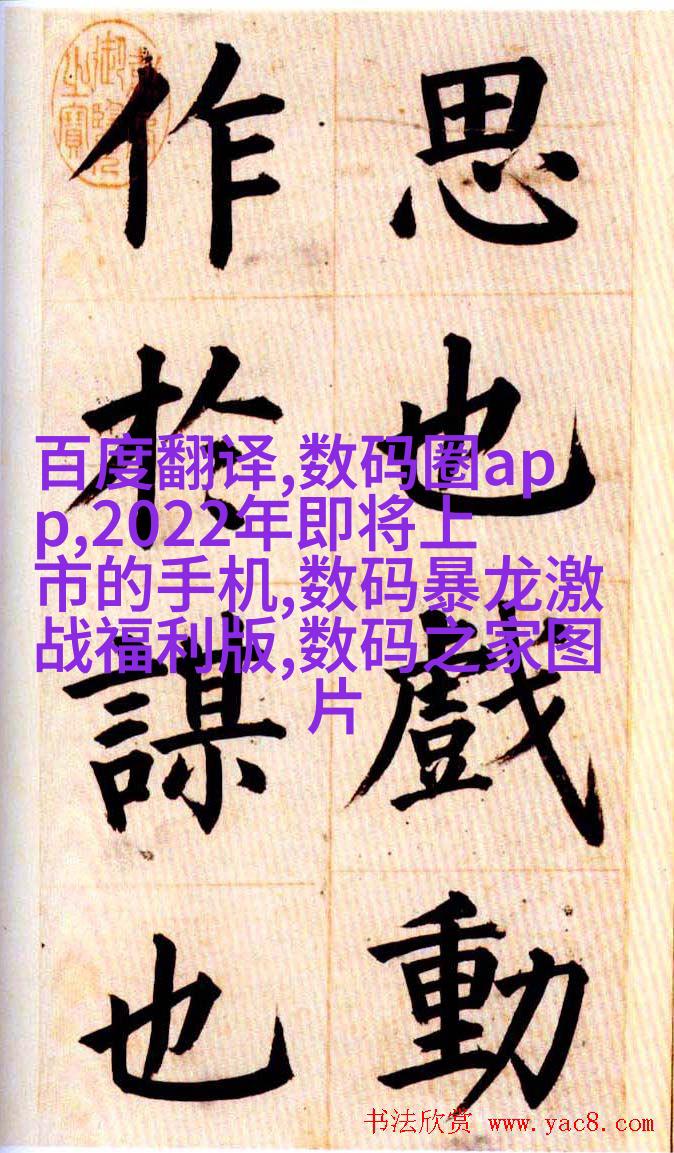 思也戲動
作於謀也
百度翻译,数码圈ap
p,2022年即将上
市的手机,数码暴龙激
战福利版,数码之家图
片
书法欣赏 www.yac8.com